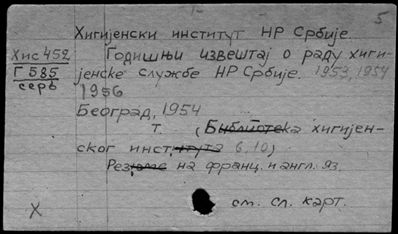 5
Хигијенски институт НР Србије.
Хис 452
Годишњи извештај о раду хиги-
Г 585
јенске службе НР Србије. 1953, 1954
серь
1956
Београд, 1954
т. (Библиотека хигијен-
ског института 6.10)
Резюме на франц. и англ. яз.
см. сл. карт.
X